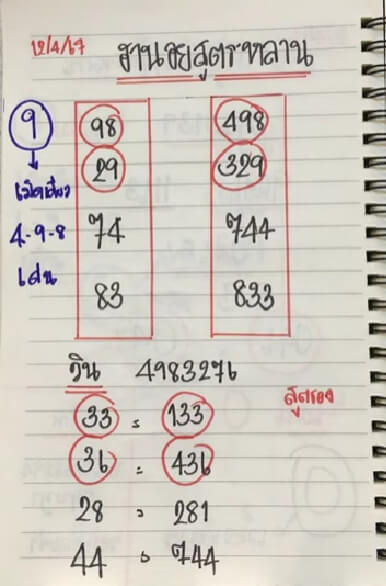 12/4/67
ฮานอยสูตรหลาน
9 98 498
29 329
เม็ดเดียว
4-9-8 74 744
เด่น
83 833
วิน 4983276
สูตรรอง
33 = 133
36 = 436
28 = 281
44 = 744